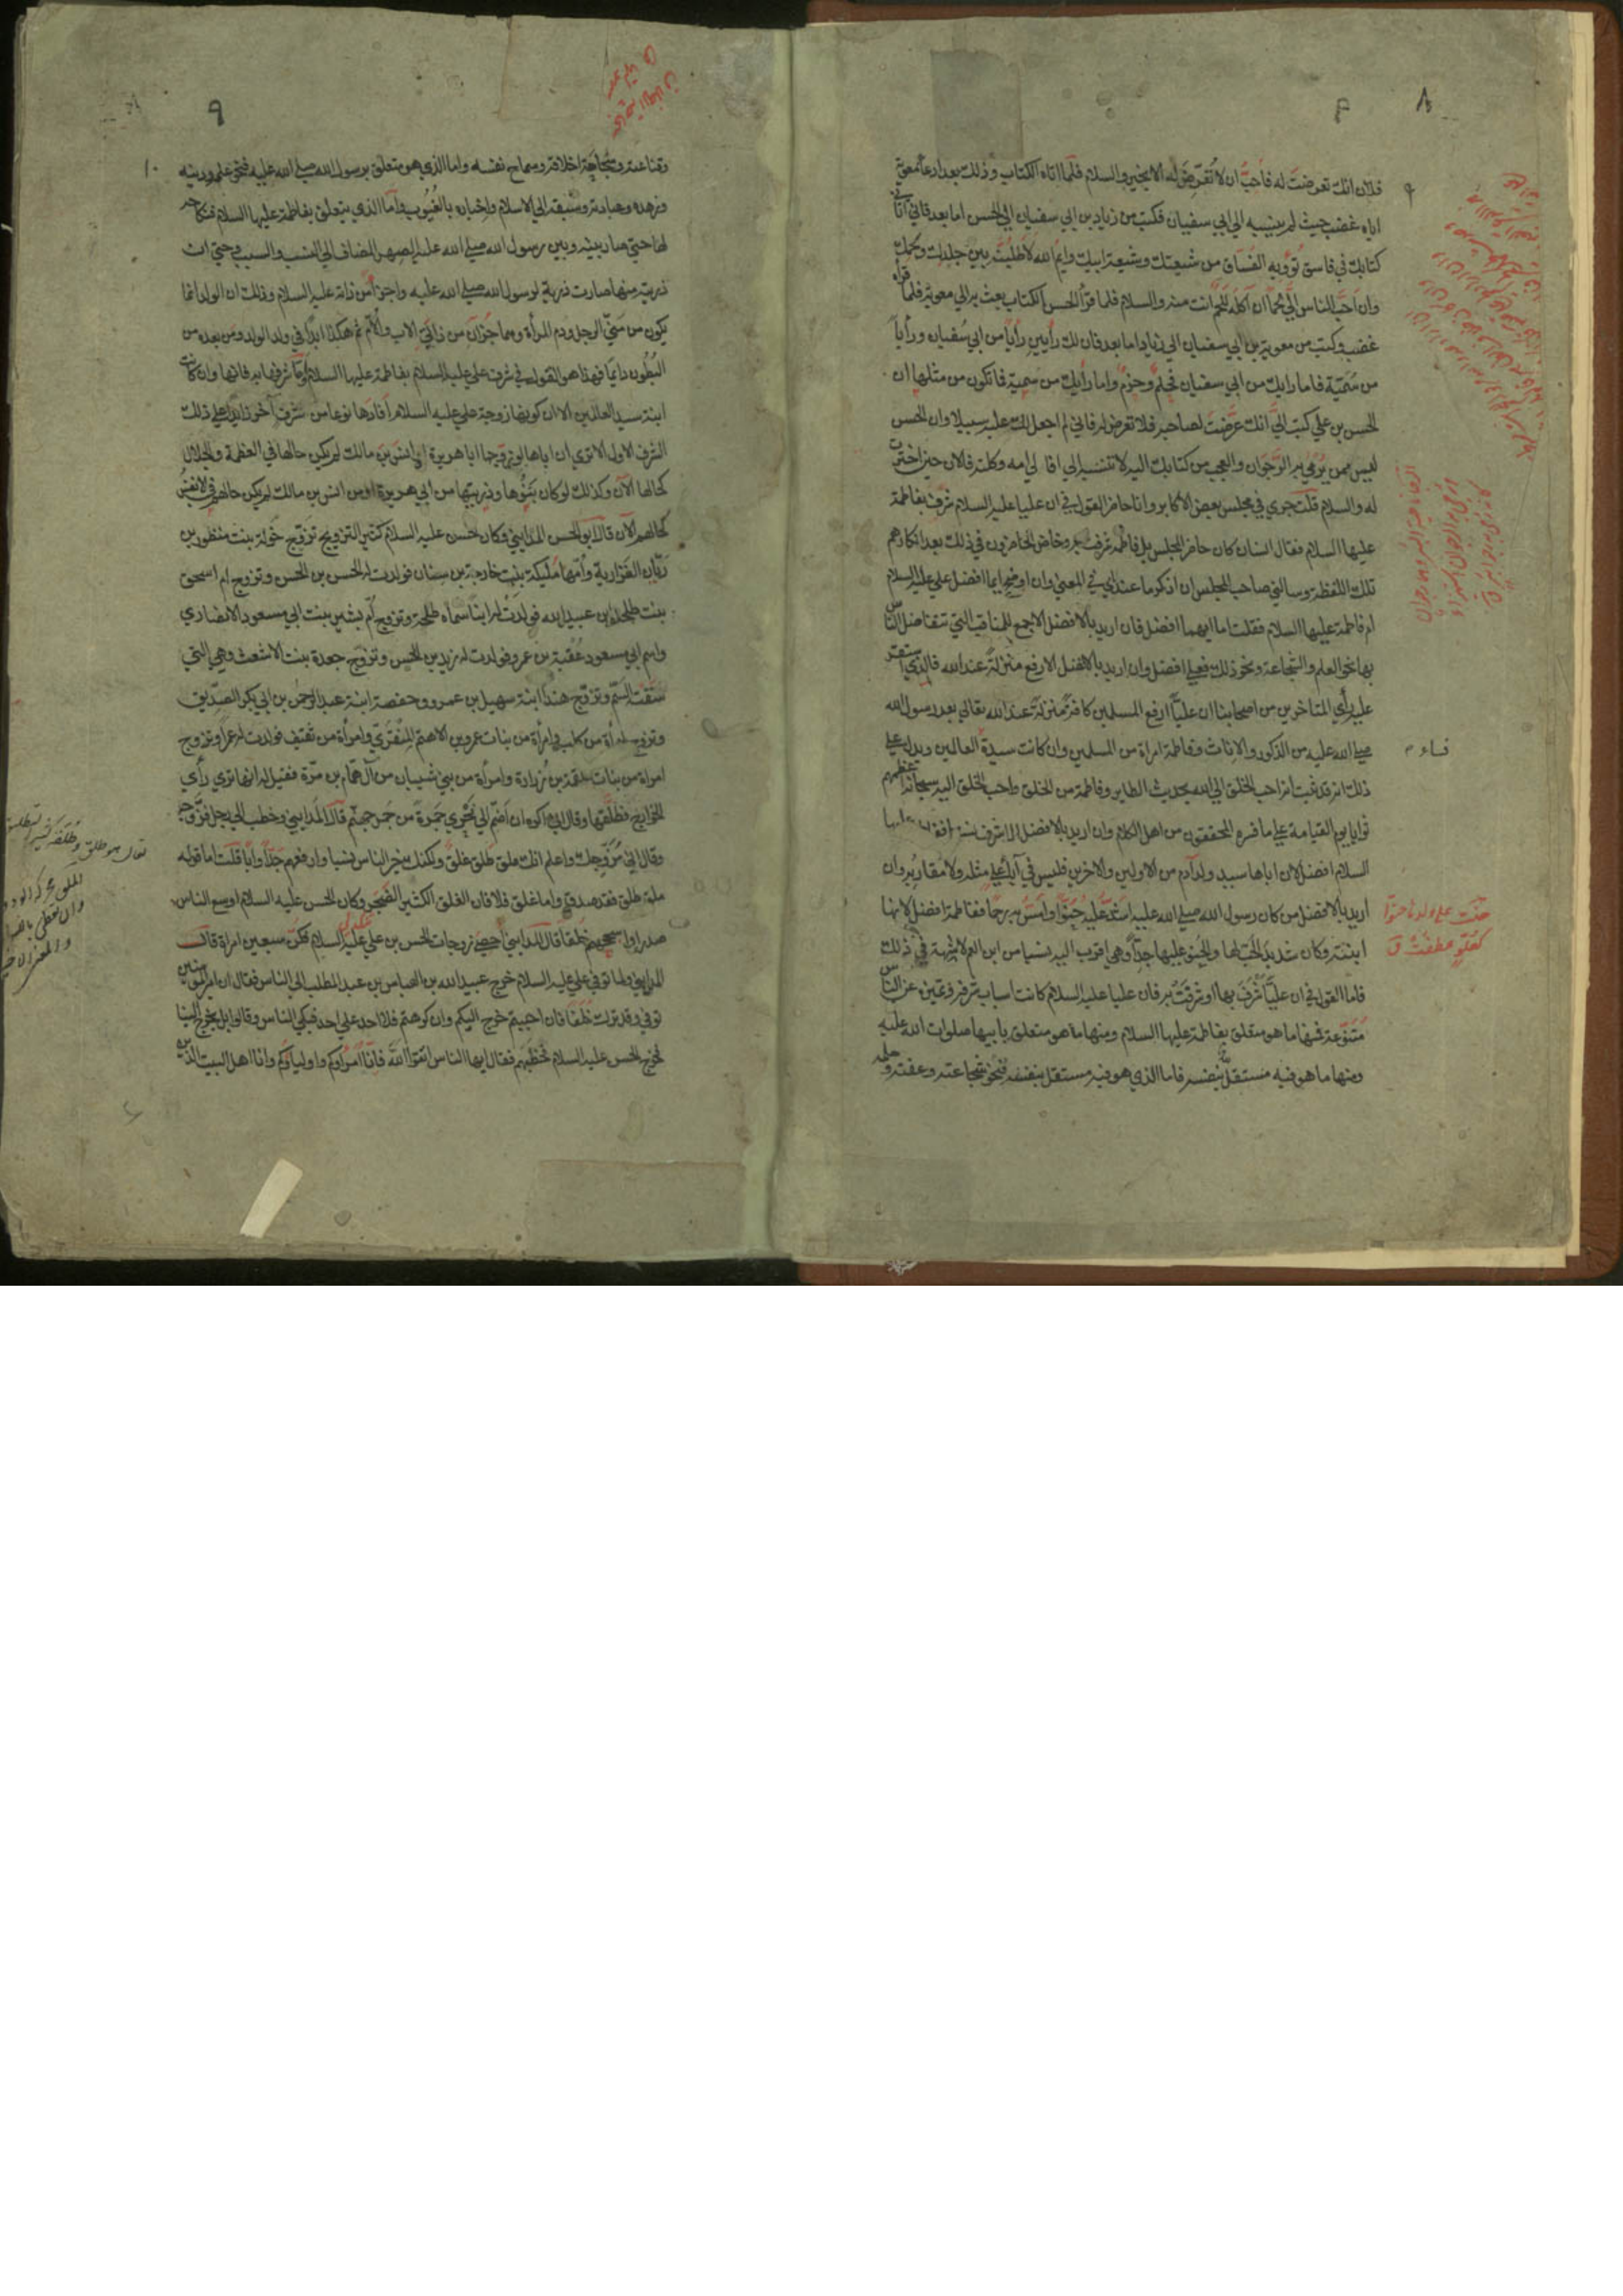 فلان انك تعرضت له فاحب ان لا تعرض له الا بخير والسلام فلما اتاه الكتاب وذلك بعد ادعاء معوية
اياه غضب حيث لم ينسبه الى ابي سفيان فكتب من زياد بن ابي سفيان الى الحسن اما بعد فاني اتاني
كتابك في فاسق تؤويه الفساق من شيعتك وشيعة ابيك وايم الله لاطلبنه بين جلدك ولحمك
وان احب الناس الي لحما ان آكله للحم انت منه والسلام فلما قرأ الحسن الكتاب بعث به الى معوية فلما قرأه
غضب وكتب من معوية بن ابي سفيان الى زياد اما بعد فان لك رأيين رأيا من ابي سفيان ورأيا
من سمية فاما رايك من ابي سفيان فحلم وحزم واما رأيك من سمية فما تكون من مثلها ان
الحسن بن علي كتب الي انك عرضت لصاحبه فلا تعرض له فاني لم اجعل لك عليه سبيلا وان الحسن
ليس ممن يرمى به الرجوان والعجب من كتابك اليه لا تنسبه الى ابيه افالى امه وكلته فالان حين اخترت
له والسلام قلت جرى في مجلس بعض الاكابر وانا حاضر القول في ان عليا عليه السلام شرف بفاطمة
عليها السلام فقال انسان كان حاضر المجلس بل فاطمة شرفت به وخاض الحاضرون في ذلك بعد انكارهم
تلك اللفظة وسالني صاحب المجلس ان اذكر ما عندي في المعنى وان اوضح ايما افضل علي عليه السلام
ام فاطمة عليها السلام فقلت اما ايهما افضل فان اريد بالافضل الاجمع للمناقب التي تتفاضل الناس
بها نحو العلم والشجاعة ونحو ذلك فعلي افضل وان اريد بالافضل الارفع منزلة عند الله فالذي استقر
عليه رأي المتاخرين من اصحابنا ان عليا ارفع المسلمين كافة منزلة عند الله تعالى بعد رسول الله
صلى الله عليه من الذكور والاناث وفاطمة امراة من المسلمين وان كانت سيدة العالمين ويدل على
ذلك انه قد ثبت انه احب الخلق الى الله بحديث الطاير وفاطمة من الخلق واحب الخلق اليه سبحانه اعظمهم
ثوابا يوم القيامة على ما فسره المحققون من اهل الكلام وان اريد بالافضل الاشرف نسبا ففاطمة عليها
السلام افضل لان اباها سيد ولد آدم من الاولين والاخرين فليس في آباء علي مثله ولا مقاربه وان
اريد بالافضل من كان رسول الله صلى الله عليه اشد عليه حنوا وامس به رحما ففاطمة افضل لانها
ابنته وكان شديد الحب لها والحنو عليها جدا وهي اقرب اليه نسبا من ابن العم لا شبهة في ذلك
فاما القول في ان عليا شرف بها او شرفت به فان عليا عليه السلام كانت اسباب شرفه وتميزه عن الناس
متنوعة فمنها ما هو متعلق بفاطمة عليها السلام ومنها ما هو متعلق بابيها صلوات الله عليه
ومنها ما هو فيه مستقل بنفسه فاما الذي هو فيه مستقل بنفسه فنحو شجاعته وعفته وحلمه
نساء م
حنت على ولدها حنوا
كعلو عطفت ق
٨
٩
١٠
وقناعته وسجاحة اخلاقه وسماح نفسه واما الذي هو متعلق برسول الله صلى الله عليه فنحو علمه ودينه
وزهده وعبادته وسبقه الى الاسلام واخباره بالغيوب واما الذي يتعلق بفاطمة عليها السلام فنكاحه
لها حتى صار بينه وبين رسول الله صلى الله عليه الصهر المضاف الى النسب والسبب وحتى ان
ذريته منها صارت ذرية لرسول الله صلى الله عليه واجزآء من ذاته عليه السلام وذلك ان الولد انما
يكون من مني الرجل ودم المرأة وهما جزآن من ذاتي الاب والام ثم هكذا ابدا في ولد الولد ومن بعده من
البطون دايما فهذا هو القول في شرف علي عليه السلام بفاطمة عليها السلام واما شرفها به فانها وان كانت
ابنة سيد العالمين الا ان كونها زوجة علي عليه السلام افادها نوعا من شرف آخر زايدا على ذلك
الشرف الاول الا ترى ان اباها لو زوجها ابا هريرة او انس بن مالك لم يكن حالها في العظمة والجلال
كحالها الآن وكذلك لو كان بنوها وذريتها من ابي هريرة او من انس بن مالك لم يكن حالهم في انفسهم
كحالهم الآن قال ابو الحسن المدايني وكان الحسن عليه السلام كثير التزويج تزوج خولة بنت منظور بن
زبان الفزارية وامها مليكة بنت خارجة بن سنان فولدت له الحسن بن الحسن وتزوج ام اسحق
بنت طلحة بن عبيد الله فولدت له ابنا سماه طلحة وتزوج ام بشير بنت ابي مسعود الانصاري
واسم ابي مسعود عقبة بن عمرو فولدت له زيد بن الحسن وتزوج جعدة بنت الاشعث وهي التي
سقته السم وتزوج هندا ابنة سهيل بن عمرو وحفصة ابنة عبد الرحمن بن ابي بكر الصديق
وتزوج امرأة من كلب وامرأة من بنات عمرو بن الاهتم المنقري وامرأة من ثقيف فولدت له عمرا وتزوج
امراة من بنات علقمة بن زرارة وامرأة من بني شيبان من آل همام بن مرة فقيل له انها ترى رأي
الخوارج فطلقها وقال اني اكره ان اضم الى نحري جمرة من جمر جهنم قال المدايني وخطب الى رجل فزوجه
وقال اني مزوجك واعلم انك ملق طلق غلق ولكنك خير الناس نسبا وارفعهم جدا وابا قلت اما قوله
ملق طلق فقد صدق واما غلق فلا فان الغلق الكثير الضجر وكان الحسن عليه السلام اوسع الناس
صدرا واسجحهم خلقا قال المدايني احصي زوجات الحسن بن علي عليه السلام فكن سبعين امراة قال
المدايني ولما توفي علي عليه السلام خرج عبيد الله بن العباس بن عبد المطلب الى الناس فقال ان امير المؤمنين
توفي وقد ترك خلفا فان احببتم خرج اليكم وان كرهتم فلا احد على احد فبكى الناس وقالوا بل يخرج الينا
فخرج الحسن عليه السلام فخطبهم فقال ايها الناس اتقوا الله فانا امراؤكم واولياؤكم وانا اهل البيت الذين